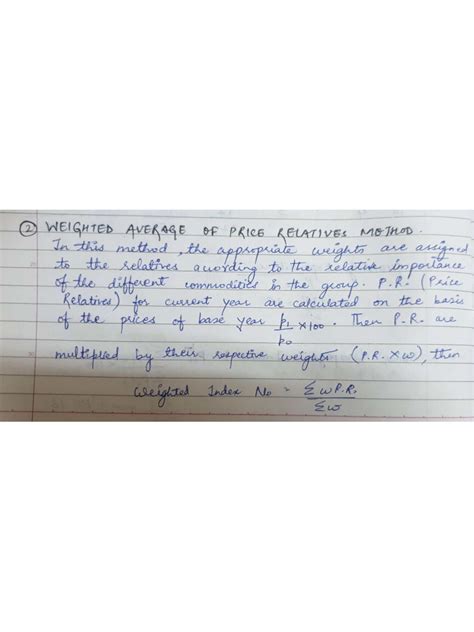 ② WEIGHTED AVERAGE OF PRICE RELATIVES METHOD.
In this method, the appropriate weights are assigned
to the relatives according to the relative importance
of the different commodities in the group. P.R. (Price
Relatives) for current year are calculated on the basis
of the prices of base year p1/p0 × 100. Then P.R. are
multiplied by their respective weights (P.R. × w), then
Weighted Index No = Σ w P.R. / Σw